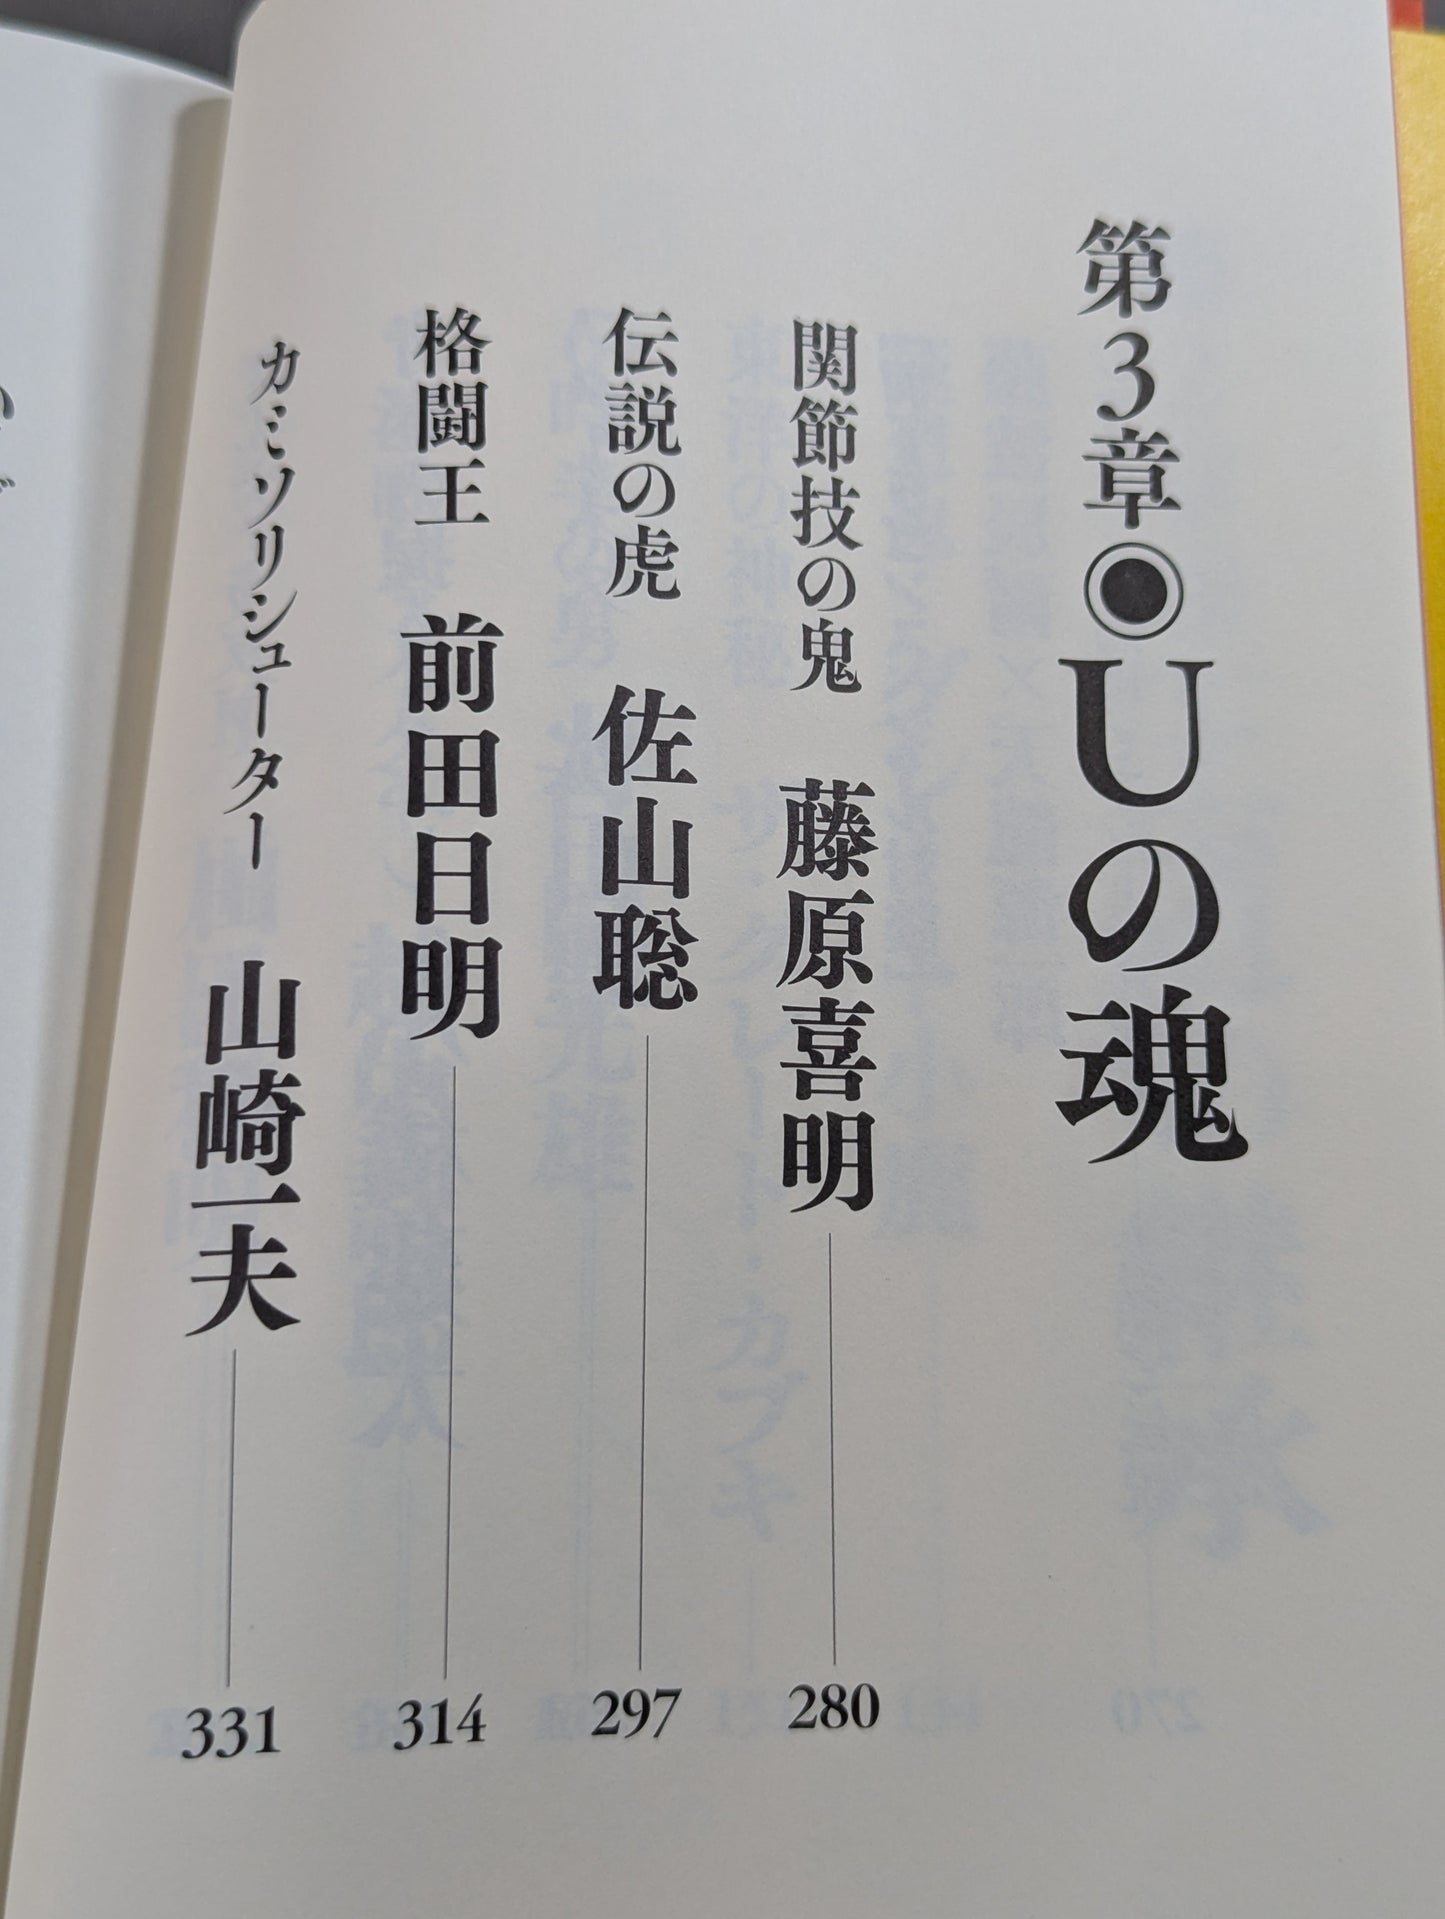 第3章◉Uの魂
関節技の鬼 藤原喜明 280
伝説の虎 佐山聡 297
格闘王 前田日明 314
カミソリシューター 山崎一夫 331